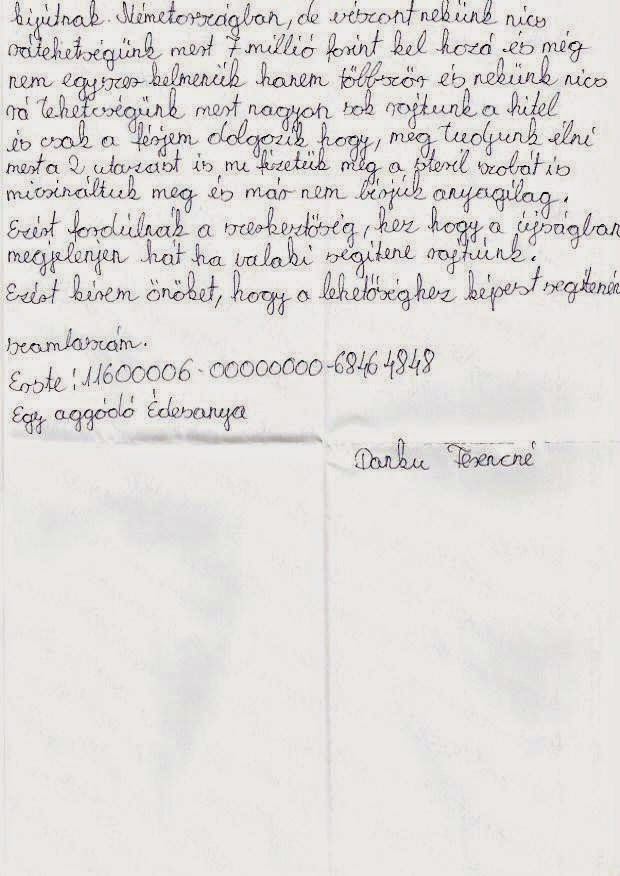 kijútnak. Németországban, de viszont nekünk nics
rátehetségünk mert 7 millió forint kel hozá és még
nem egyszer kelmenük hanem többször és nekünk nics
rá tehetcségünk mert nagyon sok rajtunk a hitel
és csak a férjem dolgozik hogy, meg tudjunk élni
mert a 2 utazást is mi fizetük meg a steril szobát is
micsináltuk meg és már nem bírjuk anyagilag.
Ezért fordúlnák a szerkeztőség, hez hogy a újságban
megjelenjen hát ha valaki segitene rajtunk.
Ezért kérem önöket, hogy a lehetőséghez képest segitenén
szamlaszám.
Erste: 11600006-00000000-68464848
Egy aggódó Édesanya
Danku Ferencné